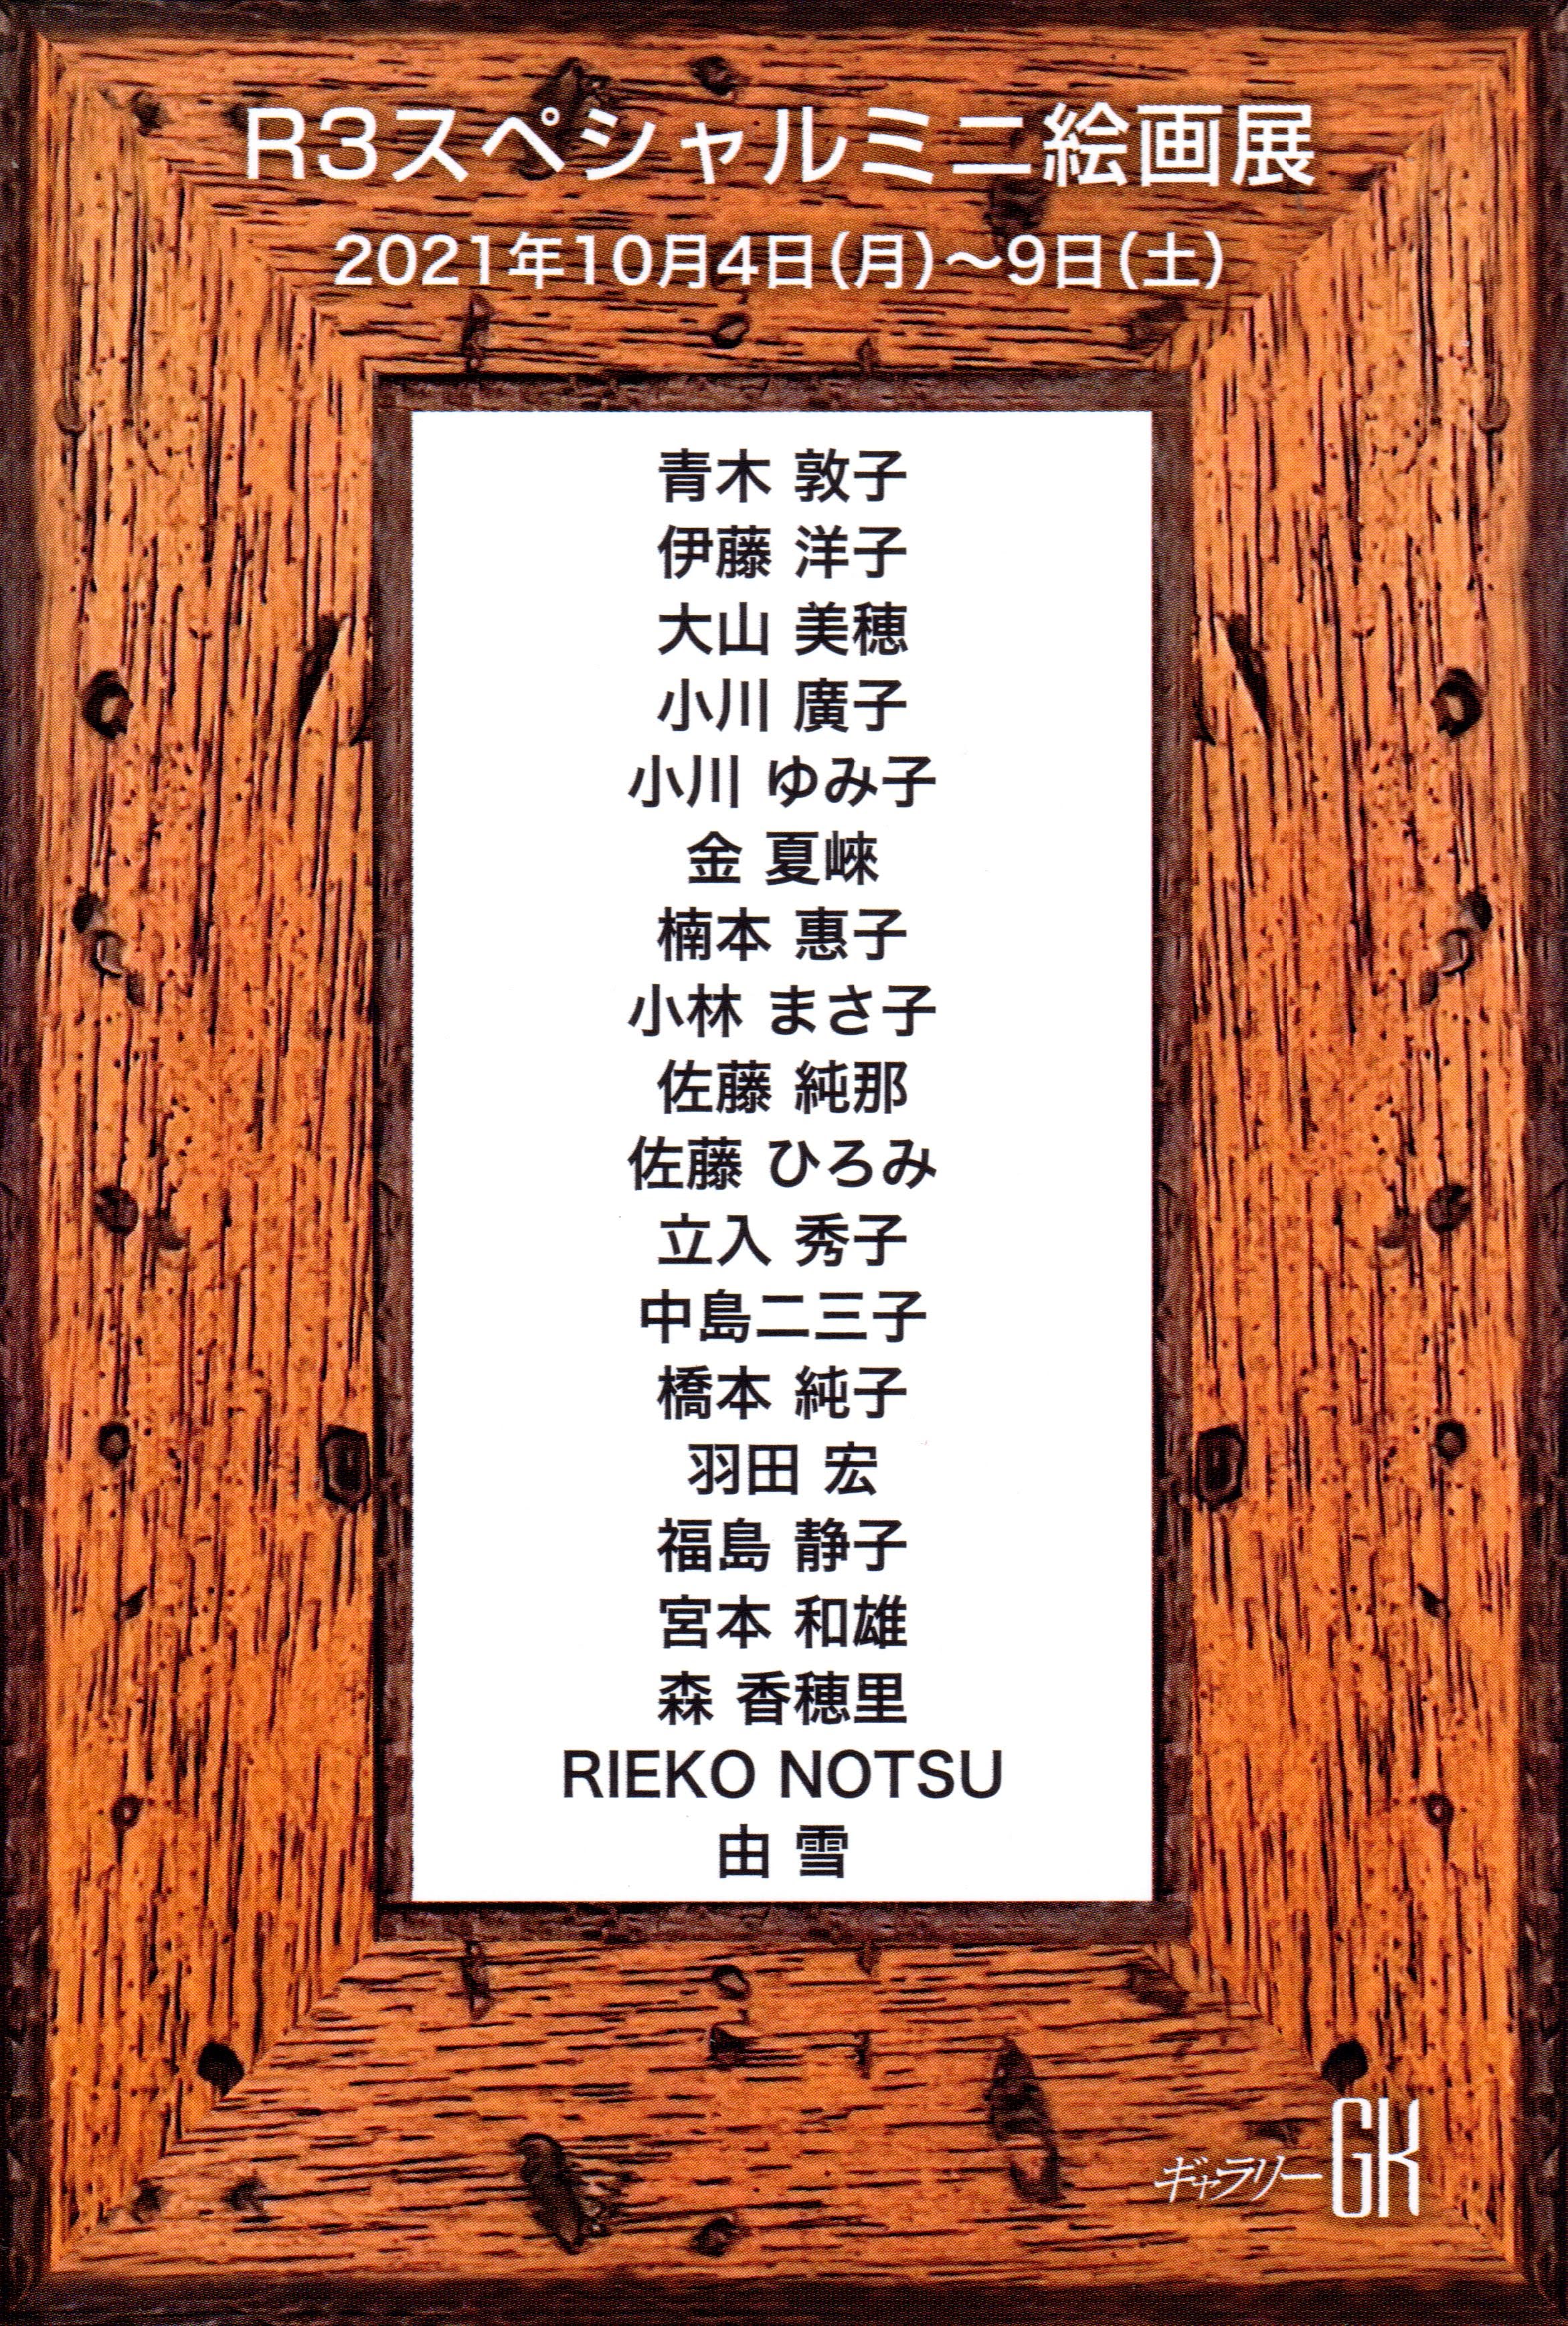 R3スペシャルミニ絵画展
2021年10月4日(月)～9日(土)
青木 敦子
伊藤 洋子
大山 美穂
小川 廣子
小川 ゆみ子
金 夏崍
楠本 惠子
小林 まさ子
佐藤 純那
佐藤 ひろみ
立入 秀子
中島二三子
橋本 純子
羽田 宏
福島 静子
宮本 和雄
森 香穂里
RIEKO NOTSU
由 雪
ギャラリーGK